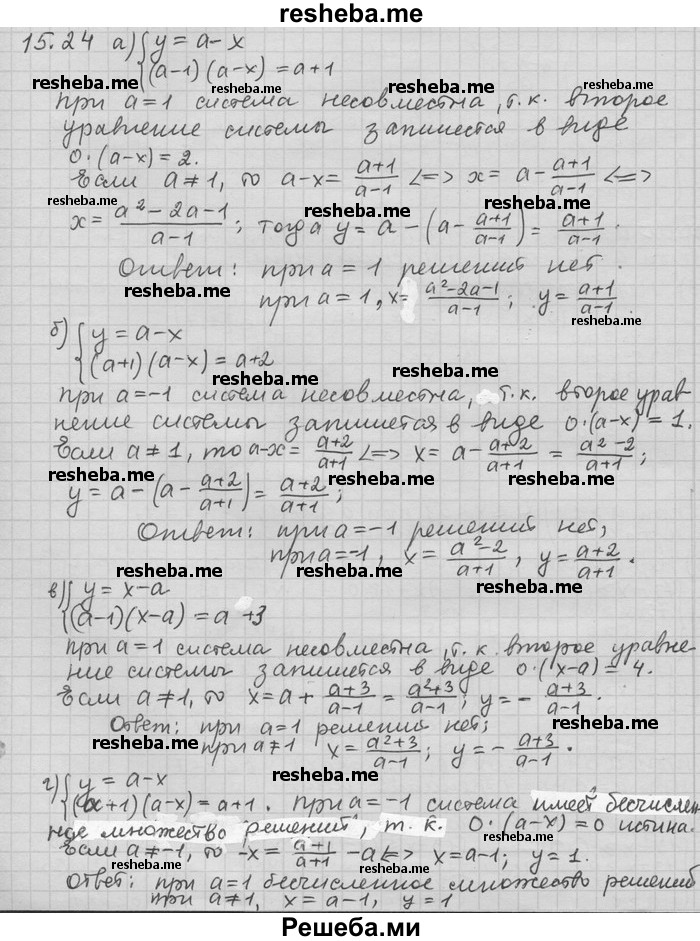 resheba.me
15.24 а) { y = a - x
(a-1)(a-x) = a+1
resheba.me resheba.me
при a=1 система несовместна, т.к. второе
уравнение системы запишется в виде
0·(a-x) = 2. resheba.me
Если a ≠ 1, то a-x = (a+1)/(a-1) <=> x = a - (a+1)/(a-1) <=>
resheba.me resheba.me
x = (a²-2a-1)/(a-1); тогда y = a - (a - (a+1)/(a-1)) = (a+1)/(a-1).
Ответ: при a = 1 решений нет.
resheba.me
при a = 1, x = (a²-2a-1)/(a-1); y = (a+1)/(a-1).
resheba.me
б) { y = a-x
(a+1)(a-x) = a+2
resheba.me resheba.me
при a=-1 система несовместна, т.к. второе урав
нение системы запишется в виде 0·(a-x) = 1.
Если a ≠ 1, то a-x = (a+2)/(a+1) <=> x = a - (a+2)/(a+1) = (a²-2)/(a+1);
resheba.me resheba.me
y = a - (a - (a+2)/(a+1)) = (a+2)/(a+1);
Ответ: при a = -1 решений нет,
resheba.me
при a=-1, x = (a²-2)/(a+1), y = (a+2)/(a+1).
resheba.me resheba.me
в) { y = x-a
(a-1)(x-a) = a+3
resheba.me resheba.me
при a=1 система несовместна, т.к. второе уравне
ние системы запишется в виде 0·(x-a) = 4.
resheba.me
Если a ≠ 1, то x = a + (a+3)/(a-1) = (a²+3)/(a-1); y = - (a+3)/(a-1).
Ответ: при a=1 решений нет;
resheba.me resheba.me
при a ≠ 1 x = (a²+3)/(a-1); y = - (a+3)/(a-1).
resheba.me resheba.me
г) { y = a-x
(x+1)(a-x) = a+1. при a=-1 система имеет бесчислен
ное множество решений, т.к. 0·(a-x) = 0 истина.
resheba.me
Если a ≠ -1, то -x = (a+1)/(a+1) - a <=> x = a-1; y = 1.
resheba.me resheba.me
Ответ: при a=1 бесчисленное множество решений
при a ≠ 1, x = a-1, y = 1
Решеба.ми